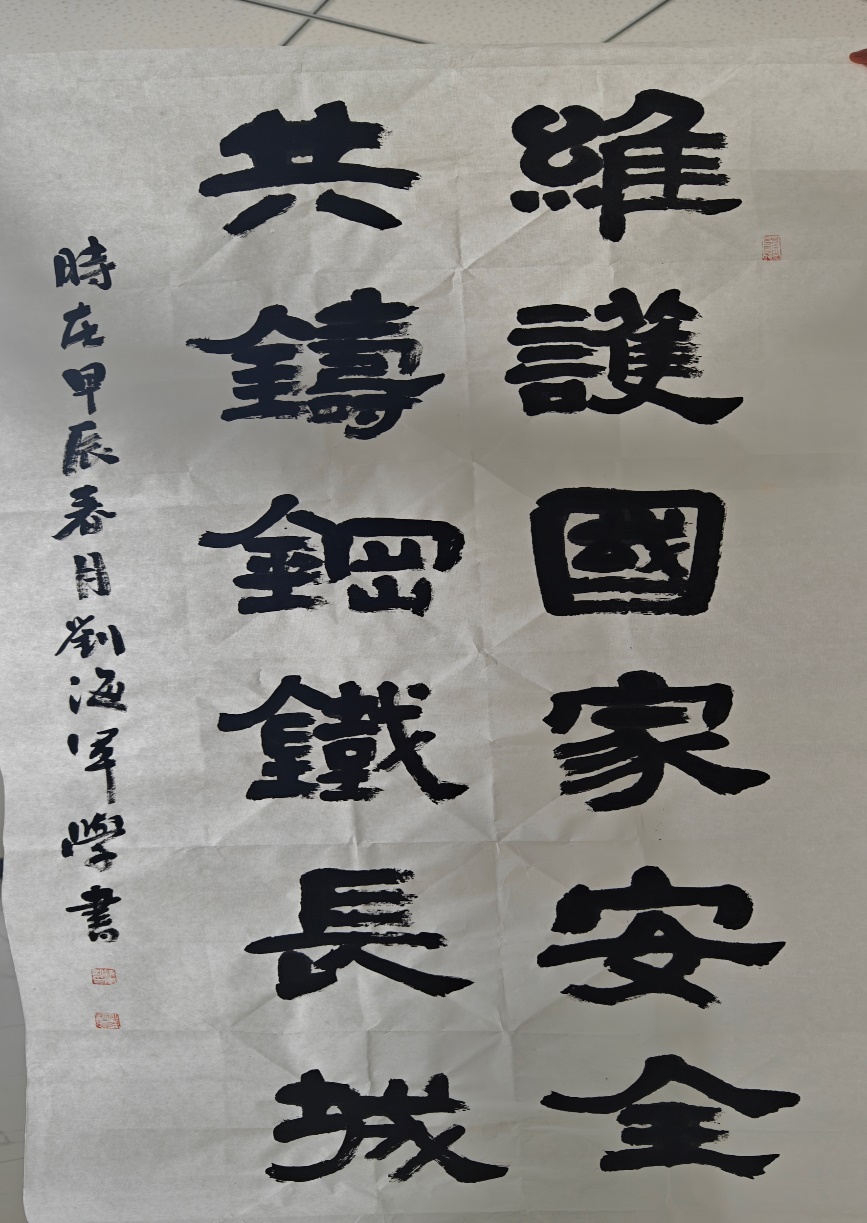 維護國家安全
共鑄鋼鐵長城
時在甲辰春月劉海軍學書